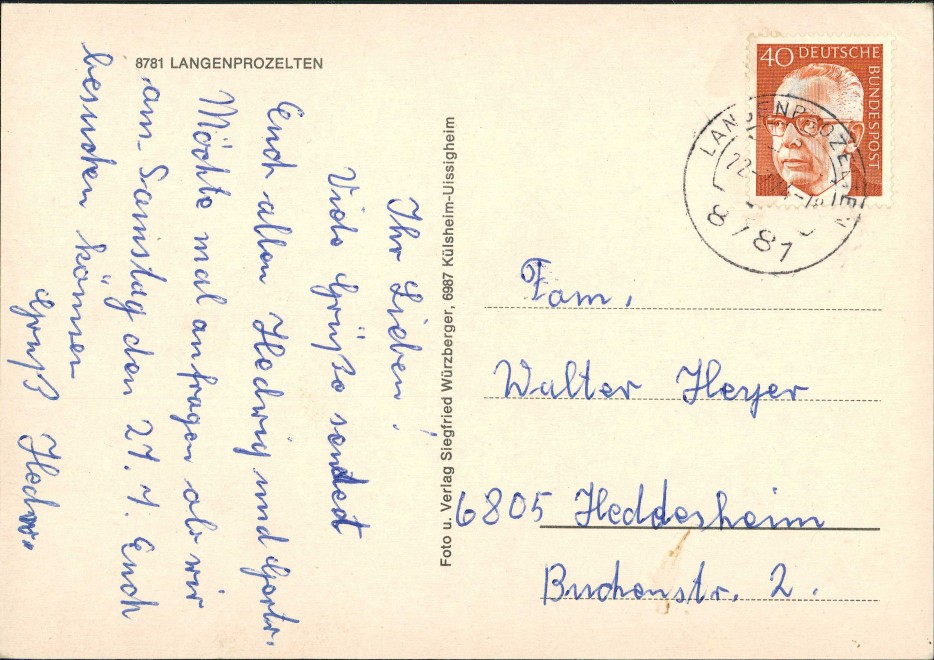 8781 LANGENPROZELTEN
Ihr Lieben!
Viele Grüße sendet
Euch allen Hedwig und Gertr.
Möchte mal anfragen ob wir
am Samstag den 27.1. Euch
besuchen können
Gruß Hedw.
Foto u. Verlag Siegfried Würzberger, 6987 Külsheim-Uissigheim
40 DEUTSCHE
BUNDESPOST
LANGENPROZELTEN
8781
Fam.
Walter Heyer
6805 Heddesheim
Buchenstr. 2.